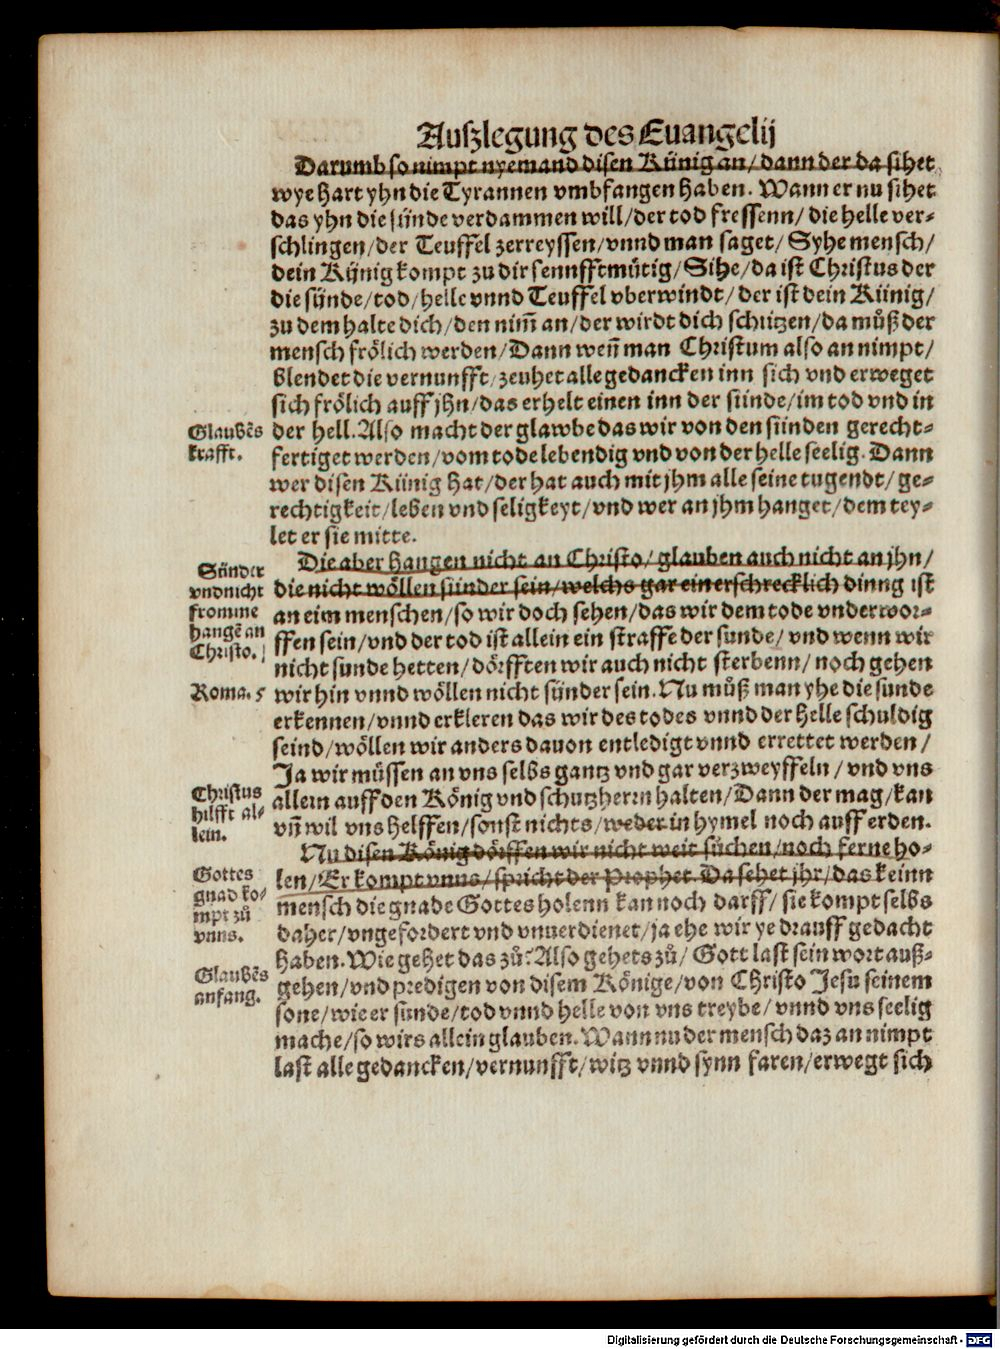 Auſzlegung des Euangelij
Darumb so nimpt nyemand disen Künig an/ dann der da sihet
wye hart yhn die Tyrannen vmbfangen haben. Wann er nu sihet
das yhn die sünde verdammen will/ der tod fressenn/ die helle ver⸗
schlingen/ der Teuffel zerreyssen/ vnnd man saget/ Syhe mensch/
dein Künig kompt zu dir sennfftmütig/ Sihe/ da ist Christus der
die sünde/ tod/ helle vnnd Teuffel vberwindt/ der ist dein Künig/
zu dem halte dich/ den nim̄ an/ der wirdt dich schützen/ da můß der
mensch frölich werden/ Dann weñ man Christum also an nimpt/
blendet die vernunfft/ zeuhet alle gedancken inn sich vnd erweget
sich frölich auff jhn/ das erhelt einen inn der sünde/ im tod vnd in
Glaubẽs
krafft.
der hell. Also macht der glawbe das wir von den sünden gerecht⸗
fertiget werden/ vom tode lebendig vnd von der helle seelig. Dann
wer disen Künig hat/ der hat auch mit jhm alle seine tugendt/ ge⸗
rechtigkeit/ leben vnd seligkeyt/ vnd wer an jhm hanget/ dem tey⸗
let er sie mitte.
Sünder
vnd nicht
fromme
hangẽ an
Christo.
Roma. 5
Die aber hangen nicht an Christo/ glauben auch nicht an jhn/
die nicht wöllen sünder sein/ welchs gar ein erschrecklich dinng ist
an eim menschen/ so wir doch sehen/ das wir dem tode vnderwor⸗
ffen sein/ vnd der tod ist allein ein straffe der sunde/ vnd wenn wir
nicht sunde hetten/ dörfften wir auch nicht sterbenn/ noch gehen
wir hin vnnd wöllen nicht sünder sein. Nu můß man yhe die sunde
erkennen/ vnnd erkleren das wir des todes vnnd der helle schuldig
seind/ wöllen wir anders dauon entledigt vnnd errettet werden/
Ja wir müssen an vns selbs gantz vnd gar verzweyffeln/ vnd vns
Christus
hilfft al⸗
lein.
allein auff den König vnd schutzherrn halten/ Dann der mag/ kan
vñ wil vns helffen/ sonst nichts/ weder in hymel noch auff erden.
Nu disen König dörffen wir nicht weit süchen/ noch ferne ho⸗
Gottes
gnad ko⸗
mpt zů
vnns.
len/ Er kompt vnns/ spricht der Prophet. Da sehet jhr/ das keinn
mensch die gnade Gottes holenn kan noch darff/ sie kompt selbs
daher/ vngefordert vnd vnuerdienet/ ja ehe wir ye drauff gedacht
haben. Wie gehet das zů? Also gehets zů/ Gott last sein wort auß⸗
Glaubẽs
anfang.
gehen/ vnd predigen von disem Könige/ von Christo Jesu seinem
sone/ wie er sunde/ tod vnnd helle von vns treybe/ vnnd vns seelig
mache/ so wirs allein glauben. Wann nu der mensch daz an nimpt
last alle gedancken/ vernunfft/ witz vnnd synn faren/ erwegt sich
Digitalisierung gefördert durch die Deutsche Forschungsgemeinschaft - DFG